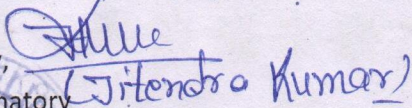 (Jitendra Kumar)
natory